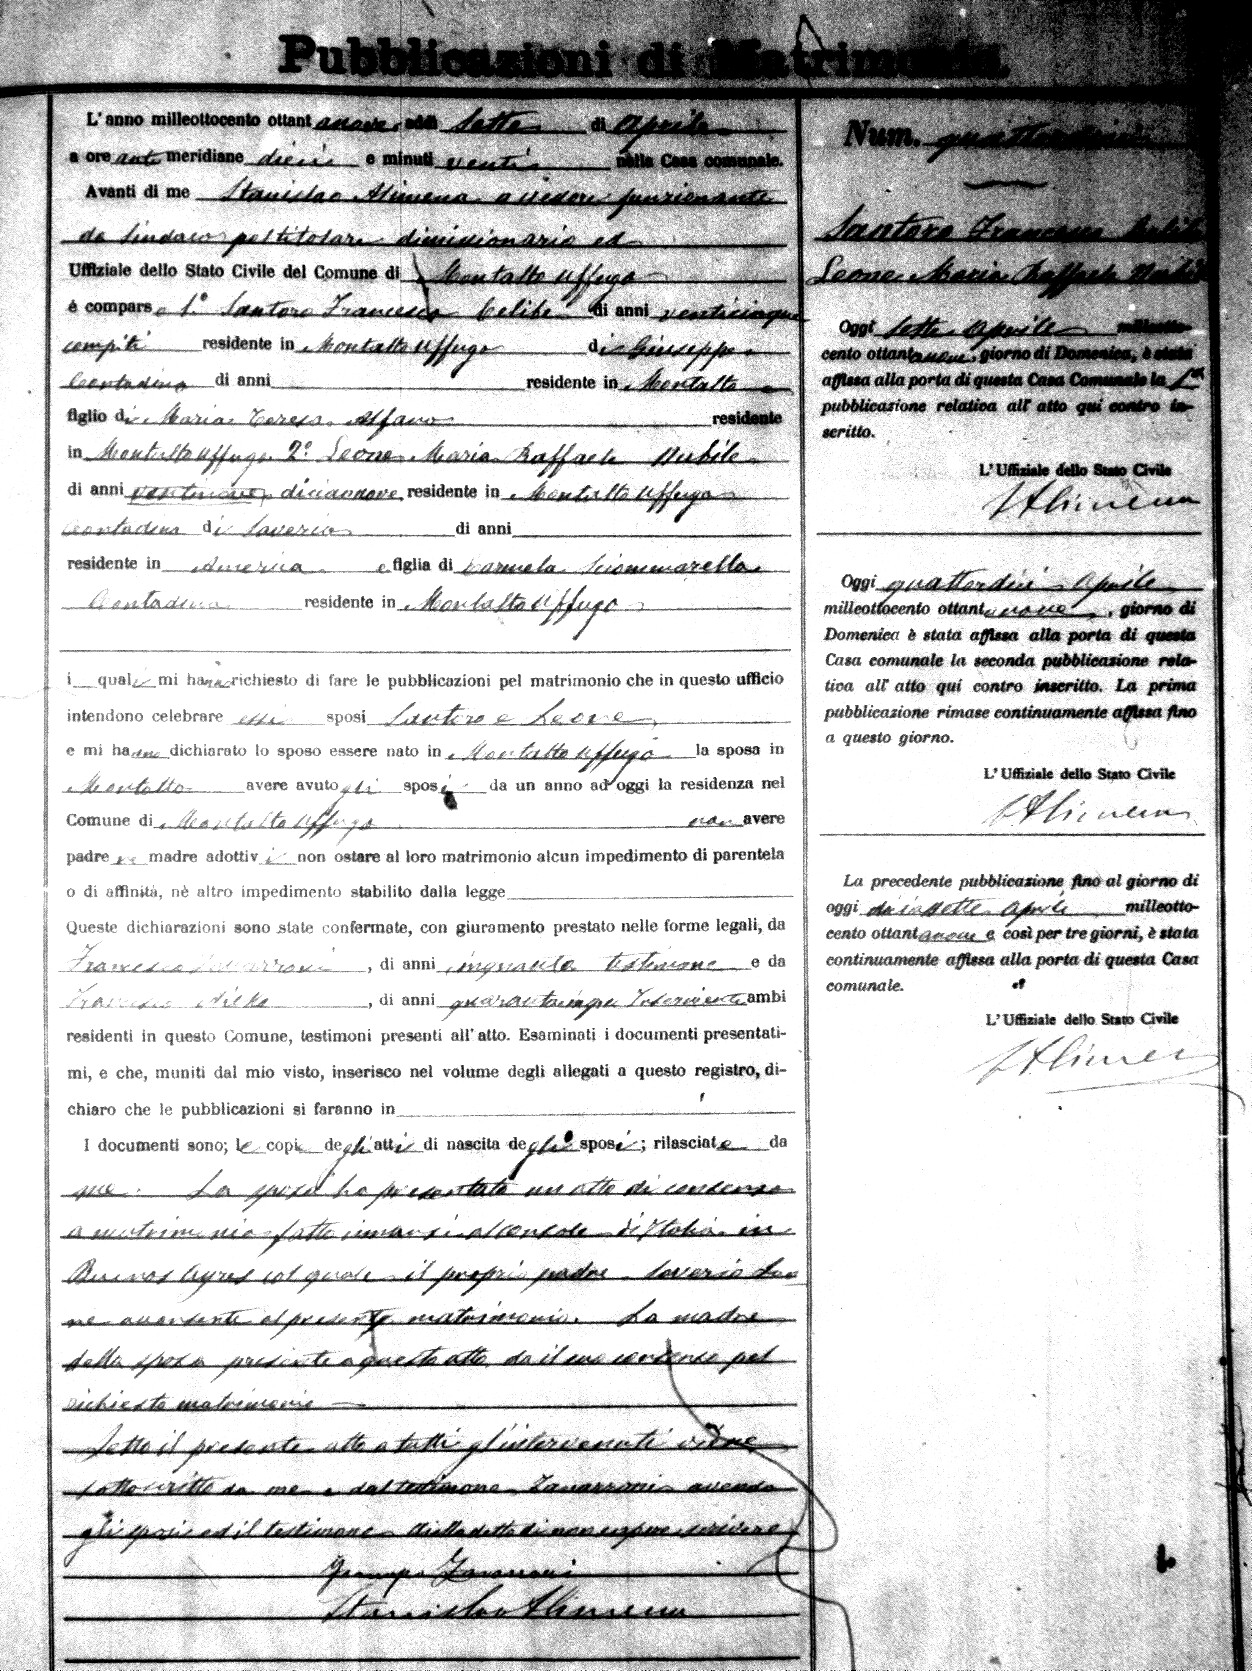 Pubblicazioni di Matrimonio.
L'anno milleottocento ottantanove, addì sette di Aprile
a ore antemeridiane dieci e minuti venti nella Casa comunale.
Avanti di me Stanislao Alimena assessore funzionante
da Sindaco pel titolare dimissionario ed
Uffiziale dello Stato Civile del Comune di Montalto Uffugo
è comparso 1.º Santoro Francesco Celibe di anni venticinque
compiti residente in Montalto Uffugo di Giuseppe
Contadino di anni residente in Montalto
figlio di Maria Teresa Alfano residente
in Montalto Uffugo 2.º Leone Maria Raffaela Nubile
di anni diciannove, residente in Montalto Uffugo
Contadina di Saverio di anni
residente in America e figlia di Carmela Sciammarella
Contadina residente in Montalto Uffugo
i quali mi hanno richiesto di fare le pubblicazioni pel matrimonio che in questo ufficio
intendono celebrare essi sposi Santoro e Leone
e mi hanno dichiarato lo sposo essere nato in Montalto Uffugo la sposa in
Montalto avere avuto gli sposi da un anno ad oggi la residenza nel
Comune di Montalto Uffugo non avere
padre ne madre adottivi non ostare al loro matrimonio alcun impedimento di parentela
o di affinità, nè altro impedimento stabilito dalla legge
Queste dichiarazioni sono state confermate, con giuramento prestato nelle forme legali, da
Francesco Zavarroni, di anni cinquanta testimone e da
Francesco, di anni quarantacinque Inserviente ambi
residenti in questo Comune, testimoni presenti all'atto. Esaminati i documenti presentati-
mi, e che, muniti dal mio visto, inserisco nel volume degli allegati a questo registro, di-
chiaro che le pubblicazioni si faranno in
I documenti sono; le copie degli atti di nascita degli sposi; rilasciate da
me. La sposa ha presentato un atto di consenso
a matrimonio fatto innanzi al Console d'Italia in
Buenos Ayres col quale il proprio padre Saverio Leo
ne acconsente al presente matrimonio. La madre
della sposa presente a questo atto, da il suo consenso pel
richiesto matrimonio
Letto il presente atto a tutti gl'intervenuti viene
sottoscritto da me e dal testimone Zavarroni avendo
gli sposi ed il testimone detto di non sapere scrivere
Zavarroni
Stanislao Alimena
Num. quattordici
Santoro Francesco Celibe
Leone Maria Raffaela Nubile
Oggi sette Aprile milleotto-
cento ottantanove, giorno di Domenica, è stata
affissa alla porta di questa Casa Comunale la 1.ª
pubblicazione relativa all'atto qui contro in-
scritto.
L'Uffiziale dello Stato Civile
S Alimena
Oggi quattordici Aprile
milleottocento ottantanove, giorno di
Domenica è stata affissa alla porta di questa
Casa comunale la seconda pubblicazione rela-
tiva all'atto qui contro inscritto. La prima
pubblicazione rimase continuamente affissa fino
a questo giorno.
L'Uffiziale dello Stato Civile
S Alimena
La precedente pubblicazione fino al giorno di
oggi diciassette Aprile milleotto-
cento ottantanove e così per tre giorni, è stata
continuamente affissa alla porta di questa Casa
comunale.
L'Uffiziale dello Stato Civile
S Alimena